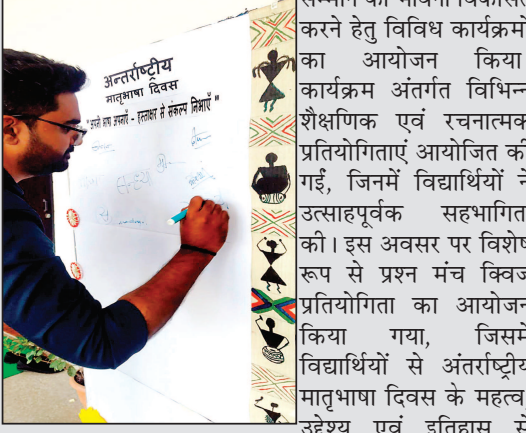 अन्तर्राष्ट्रीय
मातृभाषा दिवस
"अपनी भाषा अपनाएँ - हस्ताक्षर से संकल्प निभाएँ"
सम्मान की भावना विकसित
करने हेतु विविध कार्यक्रमों
का आयोजन किया
कार्यक्रम अंतर्गत विभिन्न
शैक्षणिक एवं रचनात्मक
प्रतियोगिताएं आयोजित की
गईं, जिनमें विद्यार्थियों ने
उत्साहपूर्वक सहभागिता
की। इस अवसर पर विशेष
रूप से प्रश्न मंच क्विज
प्रतियोगिता का आयोजन
किया गया, जिसमें
विद्यार्थियों से अंतर्राष्ट्रीय
मातृभाषा दिवस के महत्व,
उद्देश्य एवं इतिहास से